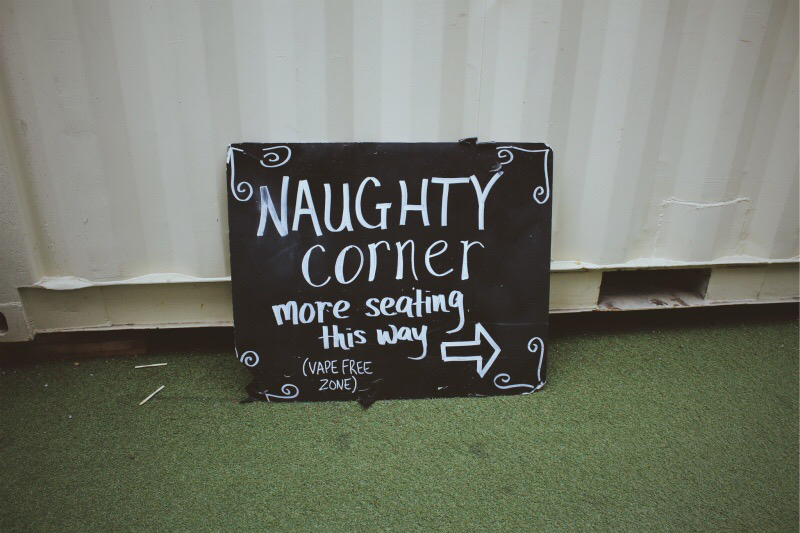 NAUGHTY
corner
more seating
this way
(VAPE FREE
ZONE)